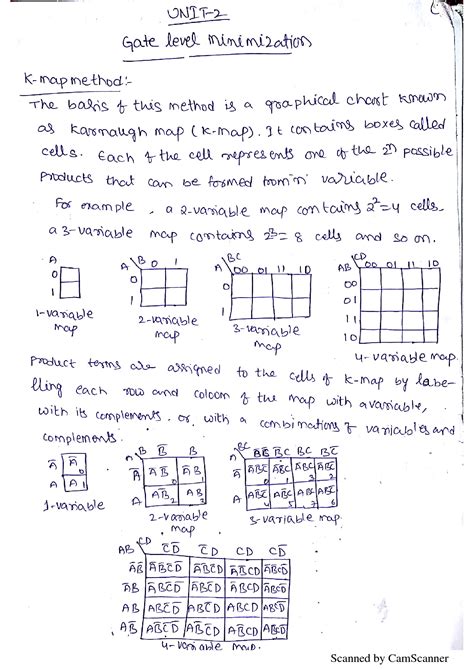 UNIT-2
Gate level minimization
K-map method:-
The basis of this method is a graphical chart known
as Karnaugh map (K-map). It contains boxes called
cells. Each of the cell represents one of the 2ⁿ possible
products that can be formed from 'n' variable.
For example, a 2-variable map contains 2²=4 cells.
a 3-variable map contains 2³= 8 cells and so on.
A
0
1
A B 0 1
0
1
A BC 00 01 11 10
0
1
AB CD 00 01 11 10
00
01
11
10
1-variable
map
2-variable
map
3-variable
map
4-variable map.
product terms are assigned to the cells of K-map by labe-
lling each row and coloom of the map with a variable,
with its complements. or, with a combinations of variables and
complements.
A
A̅ A̅ 0
A A 1
1-variable
A B B̅ B
A̅ A̅B̅ 0 A̅B 1
A AB̅ 2 AB 3
2-variable
map
A BC B̅C̅ B̅C BC BC̅
A̅ A̅B̅C̅ 0 A̅B̅C 1 A̅BC 3 A̅BC̅ 2
A AB̅C̅ 4 AB̅C 5 ABC 7 ABC̅ 6
3-variable map.
AB CD C̅D̅ C̅D CD CD̅
A̅B̅ A̅B̅C̅D̅ A̅B̅C̅D A̅B̅CD A̅B̅CD̅
A̅B A̅BC̅D̅ A̅BC̅D A̅BCD A̅BCD̅
AB ABC̅D̅ ABC̅D ABCD ABCD̅
AB̅ AB̅C̅D̅ AB̅C̅D AB̅CD AB̅CD̅
4-variable map.
Scanned by CamScanner